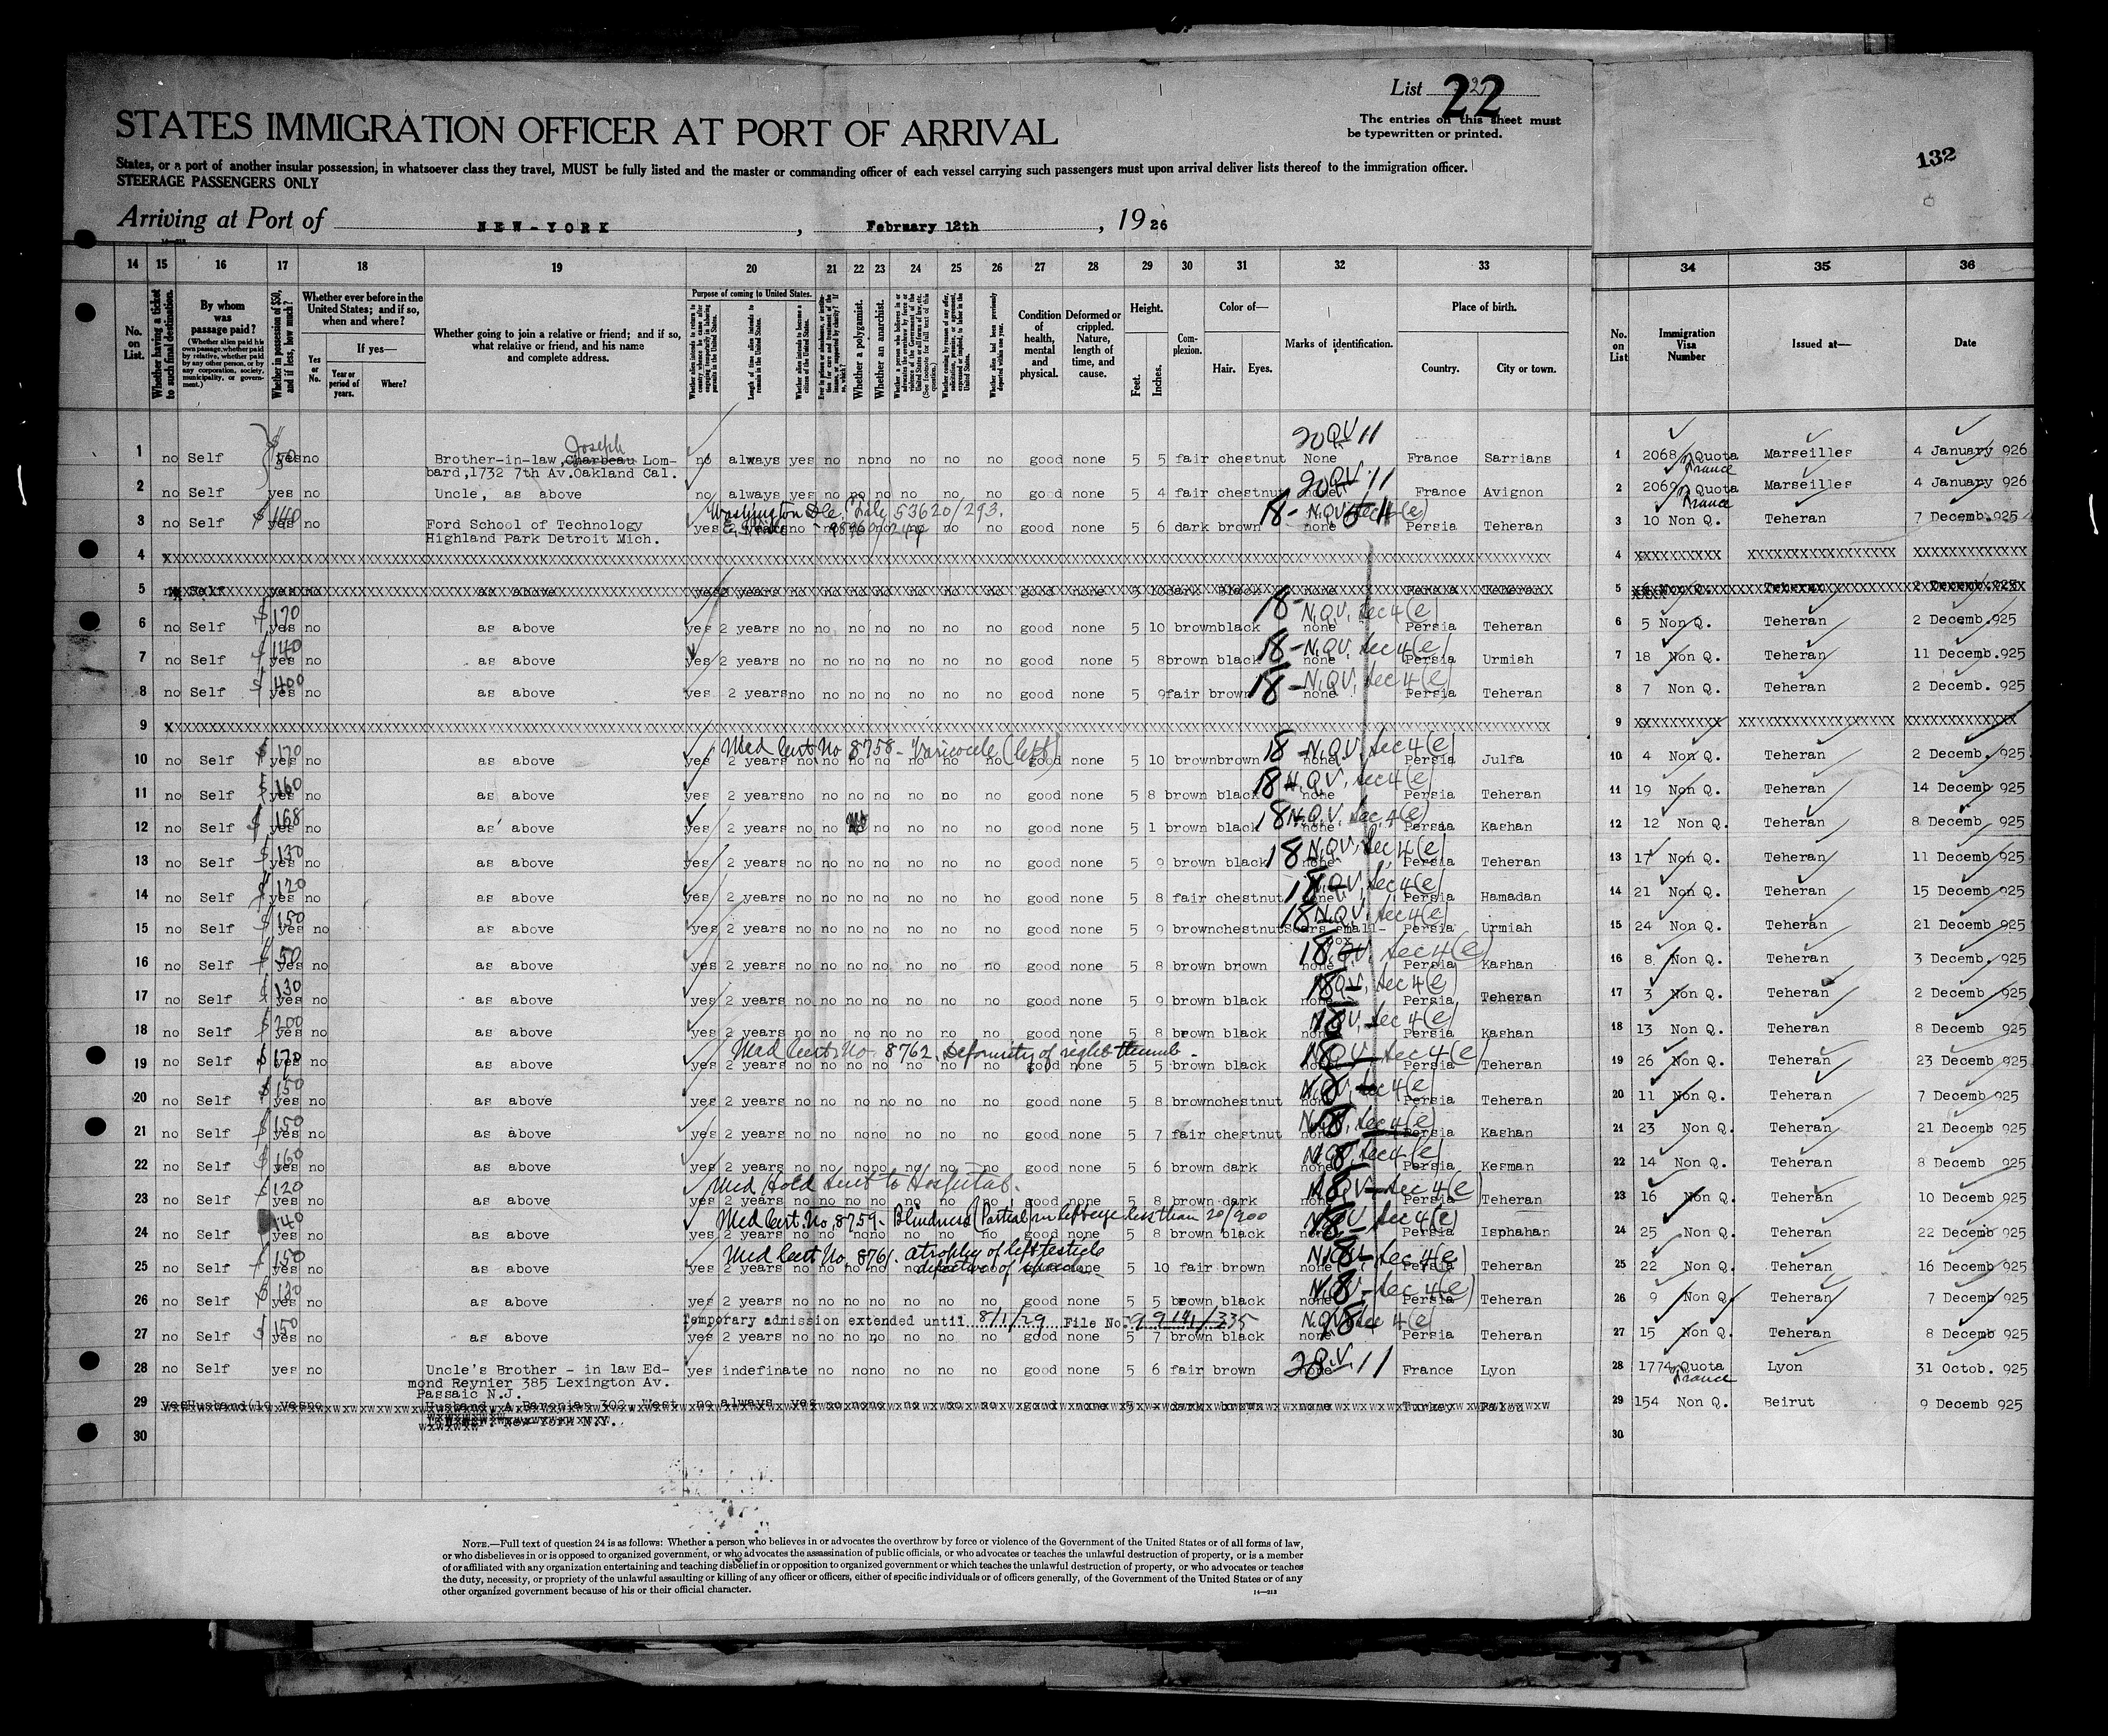 List 22
The entries on this sheet must
be typewritten or printed.
132
STATES IMMIGRATION OFFICER AT PORT OF ARRIVAL
States, or a port of another insular possession, in whatsoever class they travel, MUST be fully listed and the master or commanding officer of each vessel carrying such passengers must upon arrival deliver lists thereof to the immigration officer.
STEERAGE PASSENGERS ONLY
Arriving at Port of NEW-YORK , February 12th , 19 26
14 15 16 17 18 19 20 21 22 23 24 25 26 27 28 29 30 31 32 33 34 35 36
No. on List.
Whether having a ticket to such final destination.
By whom was passage paid?
(Whether alien paid his own passage, whether paid by relative, whether paid by any other person, or by any corporation, society, municipality, or government.)
Whether in possession of $50, and if less, how much?
Whether ever before in the United States; and if so, when and where?
Yes or No.
If yes—
Year or period of years.
Where?
Whether going to join a relative or friend; and if so, what relative or friend, and his name and complete address.
Purpose of coming to United States.
Length of time alien intends to remain in the United States.
Whether alien intends to become a citizen of the United States.
Whether a polygamist.
Whether an anarchist.
Condition of health, mental and physical.
Deformed or crippled. Nature, length of time, and cause.
Height.
Feet. Inches.
Complexion.
Color of—
Hair. Eyes.
Marks of identification.
Place of birth.
Country. City or town.
No. on List
Immigration Visa Number
Issued at—
Date
20 QV 11
Joseph
1 no Self yes no Brother-in-law, Charbeau Lom- no always yes no no no good none 5 5 fair chestnut None France Sarrians 1 2068 Quota France Marseilles 4 January 926
bard,1732 7th Av.Oakland Cal.
20 QV 11
2 no Self yes no Uncle, as above no always yes no no no no no no good none 5 4 fair chestnut none France Avignon 2 2069 Quota France Marseilles 4 January 926
Washington 53620/293.
3 no Self yes no Ford School of Technology yes no no no good none 5 6 dark brown none Persia Teheran 3 10 Non Q. Teheran 7 Decemb.925
Highland Park Detroit Mich.
4 4
5 Self yes no as above yes 2 years no no no no no no good none 5 10 dark Black none Persia Teheran 5 6 Non Q. Teheran 2 Decemb.925
18 - N.QV. Sec 4(e)
6 no Self $170 yes no as above yes 2 years no no no no no no no good none 5 10 brown black none Persia Teheran 6 5 Non Q. Teheran 2 Decemb.925
18 - N.QV. Sec 4(e)
7 no Self $140 yes no as above yes 2 years no no no no no no no good none 5 8 brown black none Persia Urmiah 7 18 Non Q. Teheran 11 Decemb.925
18 - N.QV. Sec 4(e)
8 no Self $400 yes no as above yes 2 years no no no no no no no good none 5 9 fair brown none Persia Teheran 8 7 Non Q. Teheran 2 Decemb. 925
9 9
Med Cert No 8758 - Varicocele (left) 18 - N.QV. Sec 4(e)
10 no Self yes no as above yes 2 years no no no no no no no good none 5 10 brown brown none Persia Julfa 10 4 Non Q. Teheran 2 Decemb. 925
18 N.QV. Sec 4(e)
11 no Self $160 yes no as above yes 2 years no no no no no no no good none 5 8 brown black none Persia Teheran 11 19 Non Q. Teheran 14 Decemb 925
18 N.QV. Sec 4(e)
12 no Self $168 yes no as above yes 2 years no no no no no no good none 5 1 brown black none Persia Kashan 12 12 Non Q. Teheran 8 Decemb 925
18 N.QV. Sec 4(e)
13 no Self $130 yes no as above yes 2 years no no no no no no no good none 5 9 brown black none Persia Teheran 13 17 Non Q. Teheran 11 Decemb 925
18 N.QV. Sec 4(e)
14 no Self $120 yes no as above yes 2 years no no no no no no no good none 5 8 fair chestnut none Persia Hamadan 14 21 Non Q. Teheran 15 Decemb 925
18 N.QV. Sec 4(e)
15 no Self $150 yes no as above yes 2 years no no no no no no no good none 5 9 brown chestnut Scars small- Persia Urmiah 15 24 Non Q. Teheran 21 Decemb 925
pox
18 QV. Sec 4(e)
16 no Self $50 yes no as above yes 2 years no no no no no no no good none 5 8 brown brown none Persia Kashan 16 8 Non Q. Teheran 3 Decemb. 925
18 QV. Sec 4(e)
17 no Self $130 yes no as above yes 2 years no no no no no no no good none 5 9 brown black none Persia Teheran 17 3 Non Q. Teheran 2 Decemb 925
18 QV. Sec 4(e)
18 no Self $200 yes no as above yes 2 years no no no no no no no good none 5 8 brown black none Persia Kashan 18 13 Non Q. Teheran 8 Decemb 925
Med Cert No. 8762. Deformity of right thumb - 18 QV - Sec 4(e)
19 no Self yes no as above yes 2 years no no no no no no no good none 5 5 brown black none Persia Teheran 19 26 Non Q. Teheran 23 Decemb 925
18 N.QV. Sec 4(e)
20 no Self $150 yes no as above yes 2 years no no no no no no no good none 5 8 brown chestnut none Persia Teheran 20 11 Non Q. Teheran 7 Decemb 925
18 N.QV. Sec 4(e)
21 no Self $150 yes no as above yes 2 years no no no no no no no good none 5 7 fair chestnut none Persia Kashan 21 23 Non Q. Teheran 21 Decemb 925
18 N.QV. Sec 4(e)
22 no Self $160 yes no as above yes 2 years no no no no no no no good none 5 6 brown dark none Persia Kesman 22 14 Non Q. Teheran 8 Decemb 925
Med Hold sent to Hospital. 18 QV - Sec 4(e)
23 no Self $120 yes no as above yes 2 years no no no no no no no good none 5 8 brown dark none Persia Teheran 23 16 Non Q. Teheran 10 Decemb 925
Med Cert. No. 8759 - Blindness (Partial) in left eye less than 20/200 18 N.QV Sec 4(e)
24 no Self yes no as above yes 2 years no no no no no no no good none 5 8 brown black none Persia Isphahan 24 25 Non Q. Teheran 22 Decemb 925
Med Cert No. 8761. atrophy of left testicle 18 Sec 4(e)
defective of speech
25 no Self $150 yes no as above yes 2 years no no no no none 5 10 fair brown none Persia Teheran 25 22 Non Q. Teheran 16 Decemb 925
18 Sec 4(e)
26 no Self yes no as above yes 2 years no no no no no no no good none 5 5 brown black none Persia Teheran 26 9 Non Q. Teheran 7 Decemb 925
Temporary admission extended until 8/1/29 File No. 18 N.QV Sec 4(e)
27 no Self $150 yes no as above yes 2 years no no no no no no no good none 5 7 brown black none Persia Teheran 27 15 Non Q. Teheran 8 Decemb 925
28 no Self yes no Uncle's Brother - in law Ed- yes indefinate no no no no no no good none 5 6 fair brown none France Lyon 28 1774 Quota France Lyon 31 Octob. 925
mond Reynier 385 Lexington Av.
Passaic N.J.
29 yes Husband yes no Husband A. Baronian 302 West no always yes no no no no no no good none 5 dark brown none Turkey 29 154 Non Q. Beirut 9 Decemb 925
New York N.Y.
30 30
NOTE.—Full text of question 24 is as follows: Whether a person who believes in or advocates the overthrow by force or violence of the Government of the United States or of all forms of law,
or who disbelieves in or is opposed to organized government, or who advocates the assassination of public officials, or who advocates or teaches the unlawful destruction of property, or is a member
of or affiliated with any organization entertaining and teaching disbelief in or opposition to organized government or which teaches the unlawful destruction of property, or who advocates or teaches
the duty, necessity, or propriety of the unlawful assaulting or killing of any officer or officers, either of specific individuals or of officers generally, of the Government of the United States or of any
other organized government because of his or their official character.
14—213